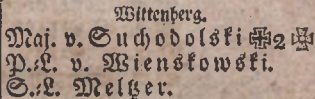 Wittenberg.
Maj. v. Suchodolski ✠2 ✠
P.=L. v. Wienskowski.
S.=L. Meltzer.